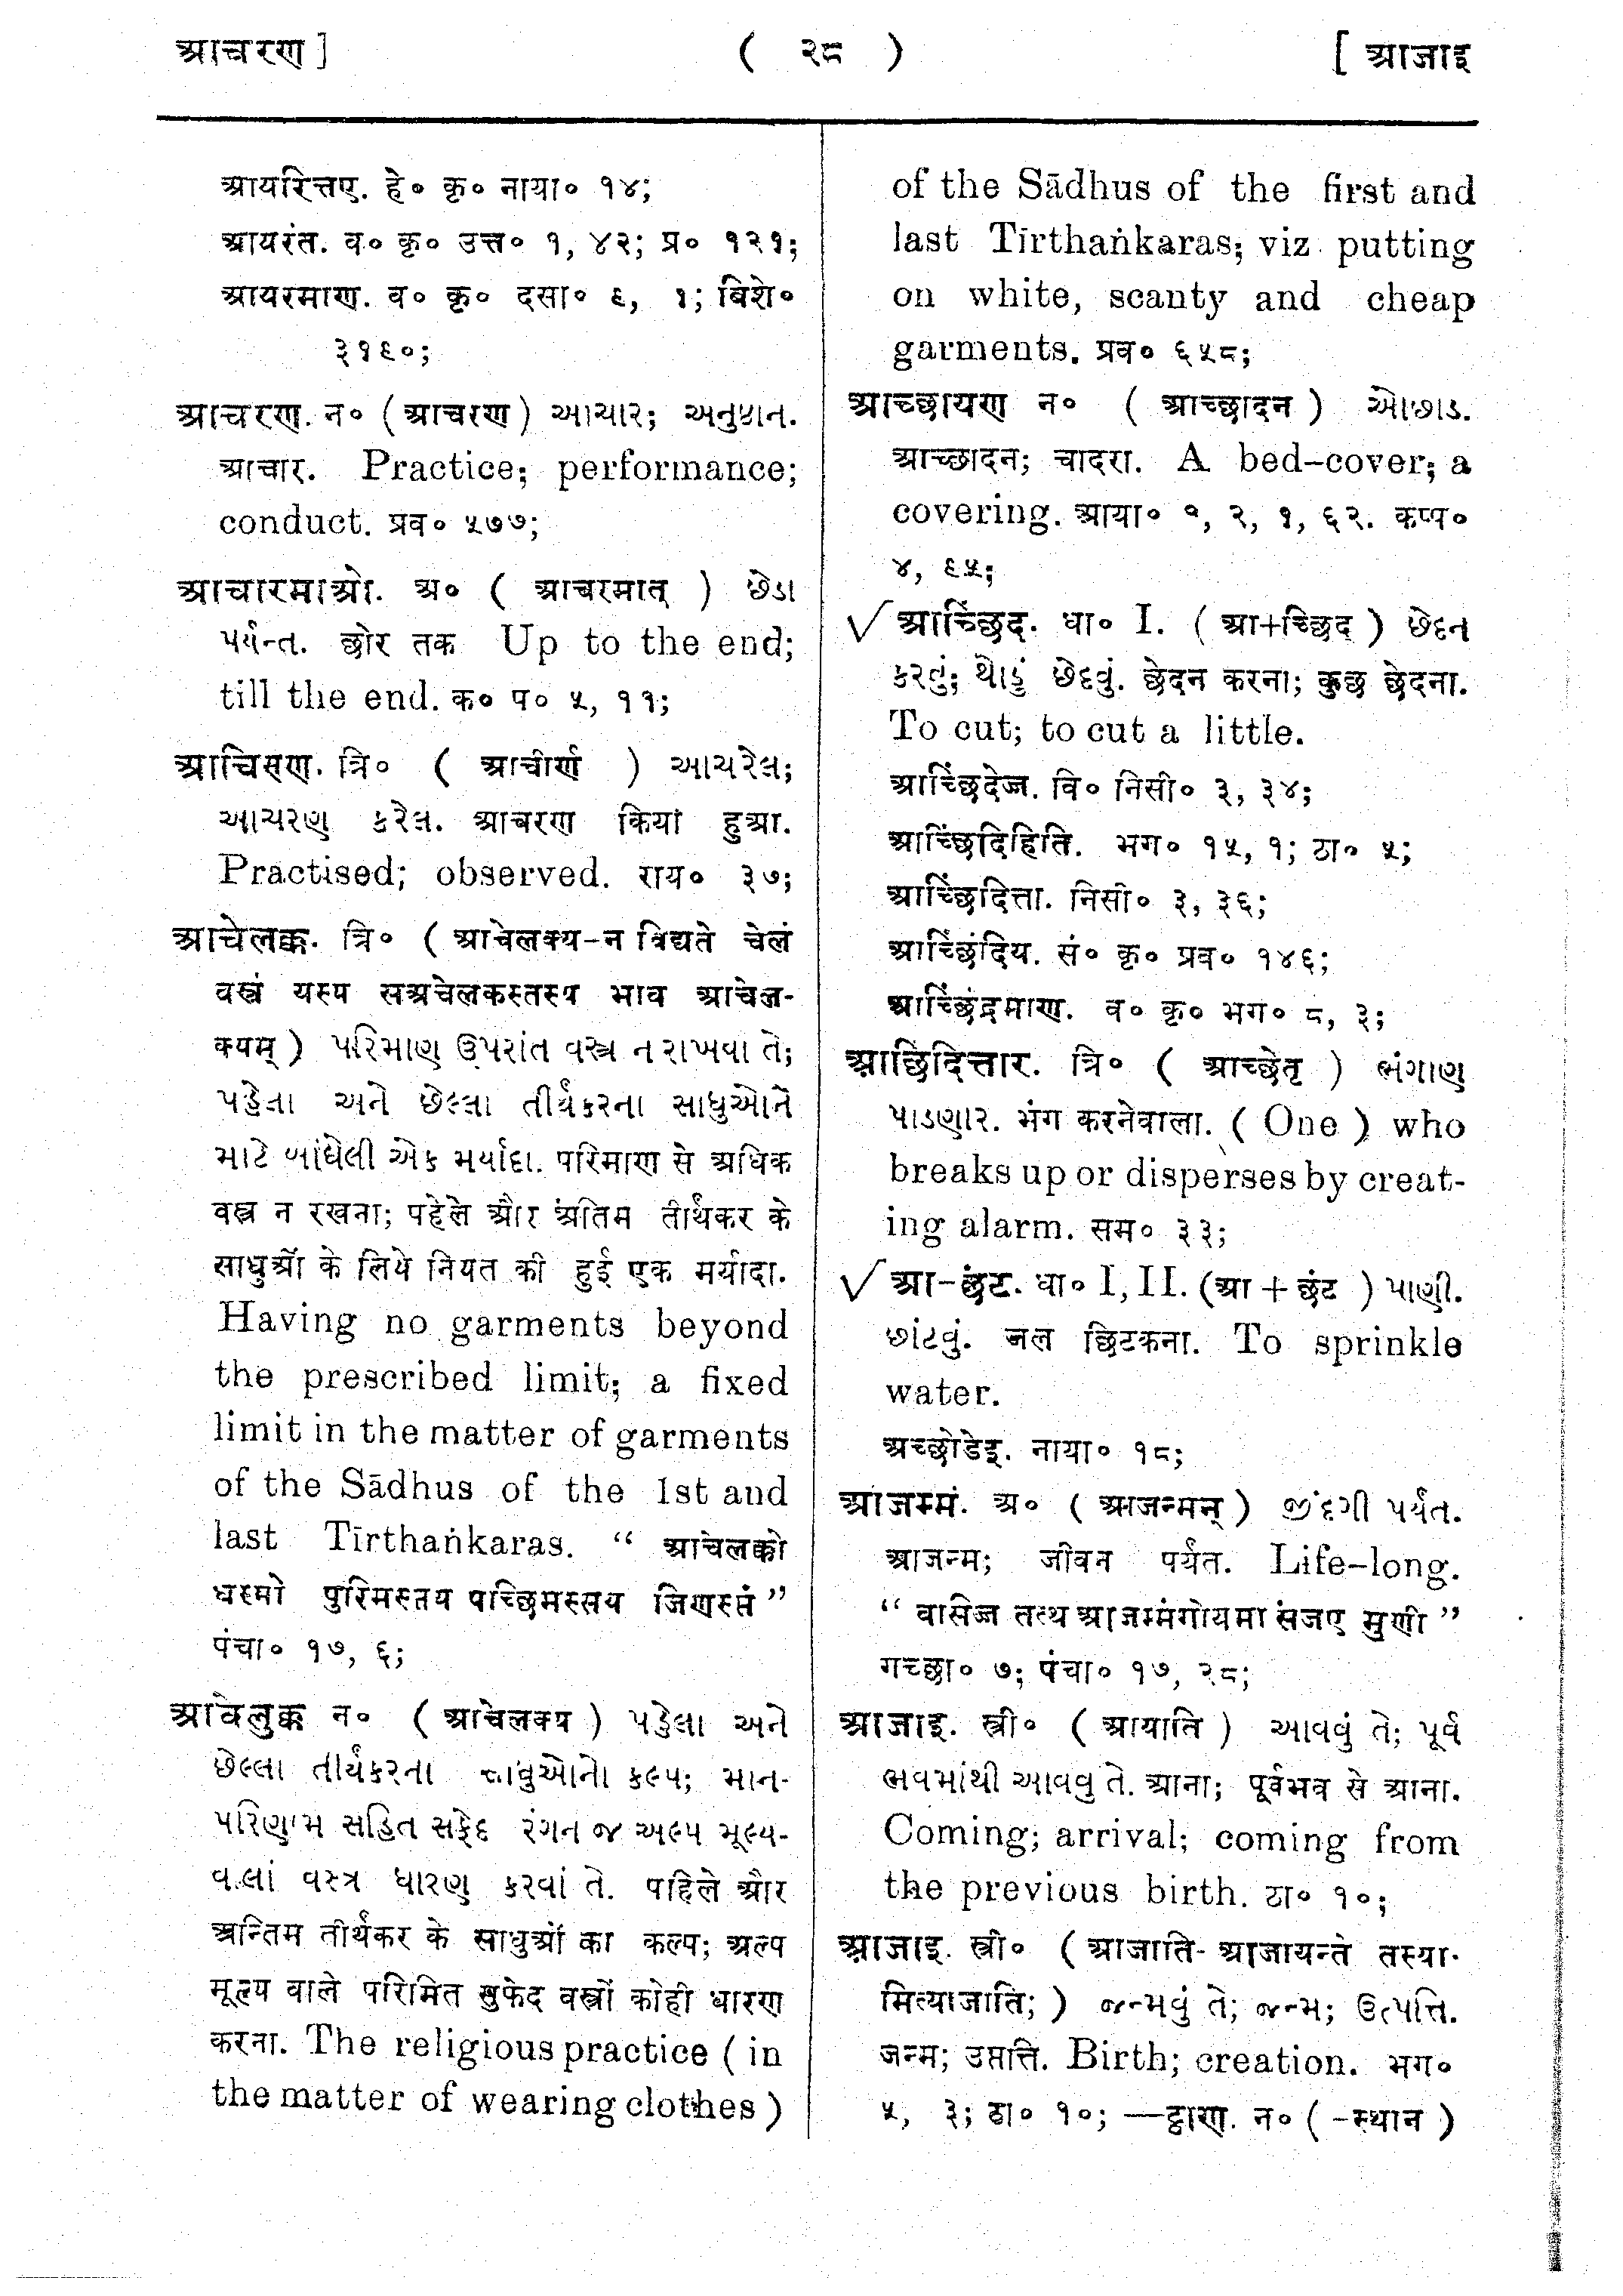 आचरण ]
( २८ )
[ आजाइ
आयरित्तए. हे० कृ० नाया० १४;
आयरंत. व० कृ० उत्त० १, ४२; प्र० १२१;
आयरमाण. व० कृ० दसा० ६, १; विशे०
३१६०;
आचरण. न० ( आचरण ) આચાર; અનુષ્ઠાન.
आचार. Practice; performance;
conduct. प्रव० ५७७;
आचारमाओ. अ० ( आचरमात् ) છેડા
પર્યન્ત. छोर तक Up to the end;
till the end. क० प० ५, ११;
आचिसण. त्रि० ( आचीर्ण ) આચરેલ;
આચરણ કરેલ. आचरण किया हुआ.
Practised; observed. राय० ३७;
आचेलक्क. त्रि० ( आचेलक्य-न विद्यते चेलं
वस्त्रं यस्य सअचेलकस्तस्य भाव आचेल-
क्यम् ) પરિમાણ ઉપરાંત વસ્ત્ર ન રાખવા તે;
પહેલા અને છેલ્લા તીર્થંકરના સાધુઓને
માટે બાંધેલી એક મર્યાદા. परिमाण से अधिक
वस्त्र न रखना; पहेले और अंतिम तीर्थंकर के
साधुओं के लिये नियत की हुई एक मर्यादा.
Having no garments beyond
the prescribed limit; a fixed
limit in the matter of garments
of the Sādhus of the 1st and
last Tīrthaṅkaras. “ आचेलक्को
धम्मो पुरिमस्तय पच्छिमस्सय जिणस्सं ”
पंचा० १७, ६;
आचेलुक्क न० ( आचेलक्य ) પહેલા અને
છેલ્લા તીર્થંકરના સાધુઓનો કલ્પ; માન-
પરિણામ સહિત સફેદ રંગન જ અલ્પ મૂલ્ય-
વાલાં વસ્ત્ર ધારણ કરવાં તે. पहिले और
अन्तिम तीर्थंकर के साधुओं का कल्प; अल्प
मूल्य वाले परिमित सुफेद वस्त्रों कोही धारण
करना. The religious practice ( in
the matter of wearing clothes )
of the Sādhus of the first and
last Tīrthaṅkaras; viz putting
on white, scanty and cheap
garments. प्रव० ६५८;
आच्छायण न० ( आच्छादन ) ઓછાડ.
आच्छादन; चादरा. A bed-cover; a
covering. आया० १, २, १, ६२. कप्प०
४, ६५;
√ आच्छिंद. धा० I. ( आ+च्छिद् ) છેદન
કરવું; થોડું છેદવું. छेदन करना; कुछ छेदना.
To cut; to cut a little.
आच्छिंदेज्ज. वि० निसी० ३, ३४;
आच्छिंदिहिति. भग० १५, १; ठा० ५;
आच्छिंदित्ता. निसी० ३, ३६;
आच्छिंदिय. सं० कृ० प्रव० १४६;
आच्छिंदमाण. व० कृ० भग० ८, ३;
आछिंदित्तार. त्रि० ( आच्छेतृ ) ભંગાણ
પાડણાર. भंग करनेवाला. ( One ) who
breaks up or disperses by creat-
ing alarm. सम० ३३;
√ आ-छंट. धा० I, II. (आ + छंट ) પાણી.
છાંટવું. जल छिटकना. To sprinkle
water.
अच्छोडेइ. नाया० १८;
आजम्मं. अ० ( आजन्मन् ) જીંદગી પર્યંત.
आजन्म; जीवन पर्यंत. Life-long.
“ वासिज्ज तत्थ आजम्मंगोयमा संजए मुणी ”
गच्छा० ७; पंचा० १७, २८;
आजाइ. स्त्री० ( आयाति ) આવવું તે; પૂર્વ
ભવમાંથી આવવુ તે. आना; पूर्वभव से आना.
Coming; arrival; coming from
the previous birth. ठा० १०;
आजाइ. स्त्री० ( आजाति- आजायन्ते तस्या-
मित्याजाति; ) જન્મવું તે; જન્મ; ઉત્પત્તિ.
जन्म; उप्तत्ति. Birth; creation. भग०
५, ३; ठा० १०; —ट्ठाण. न० ( -स्थान )